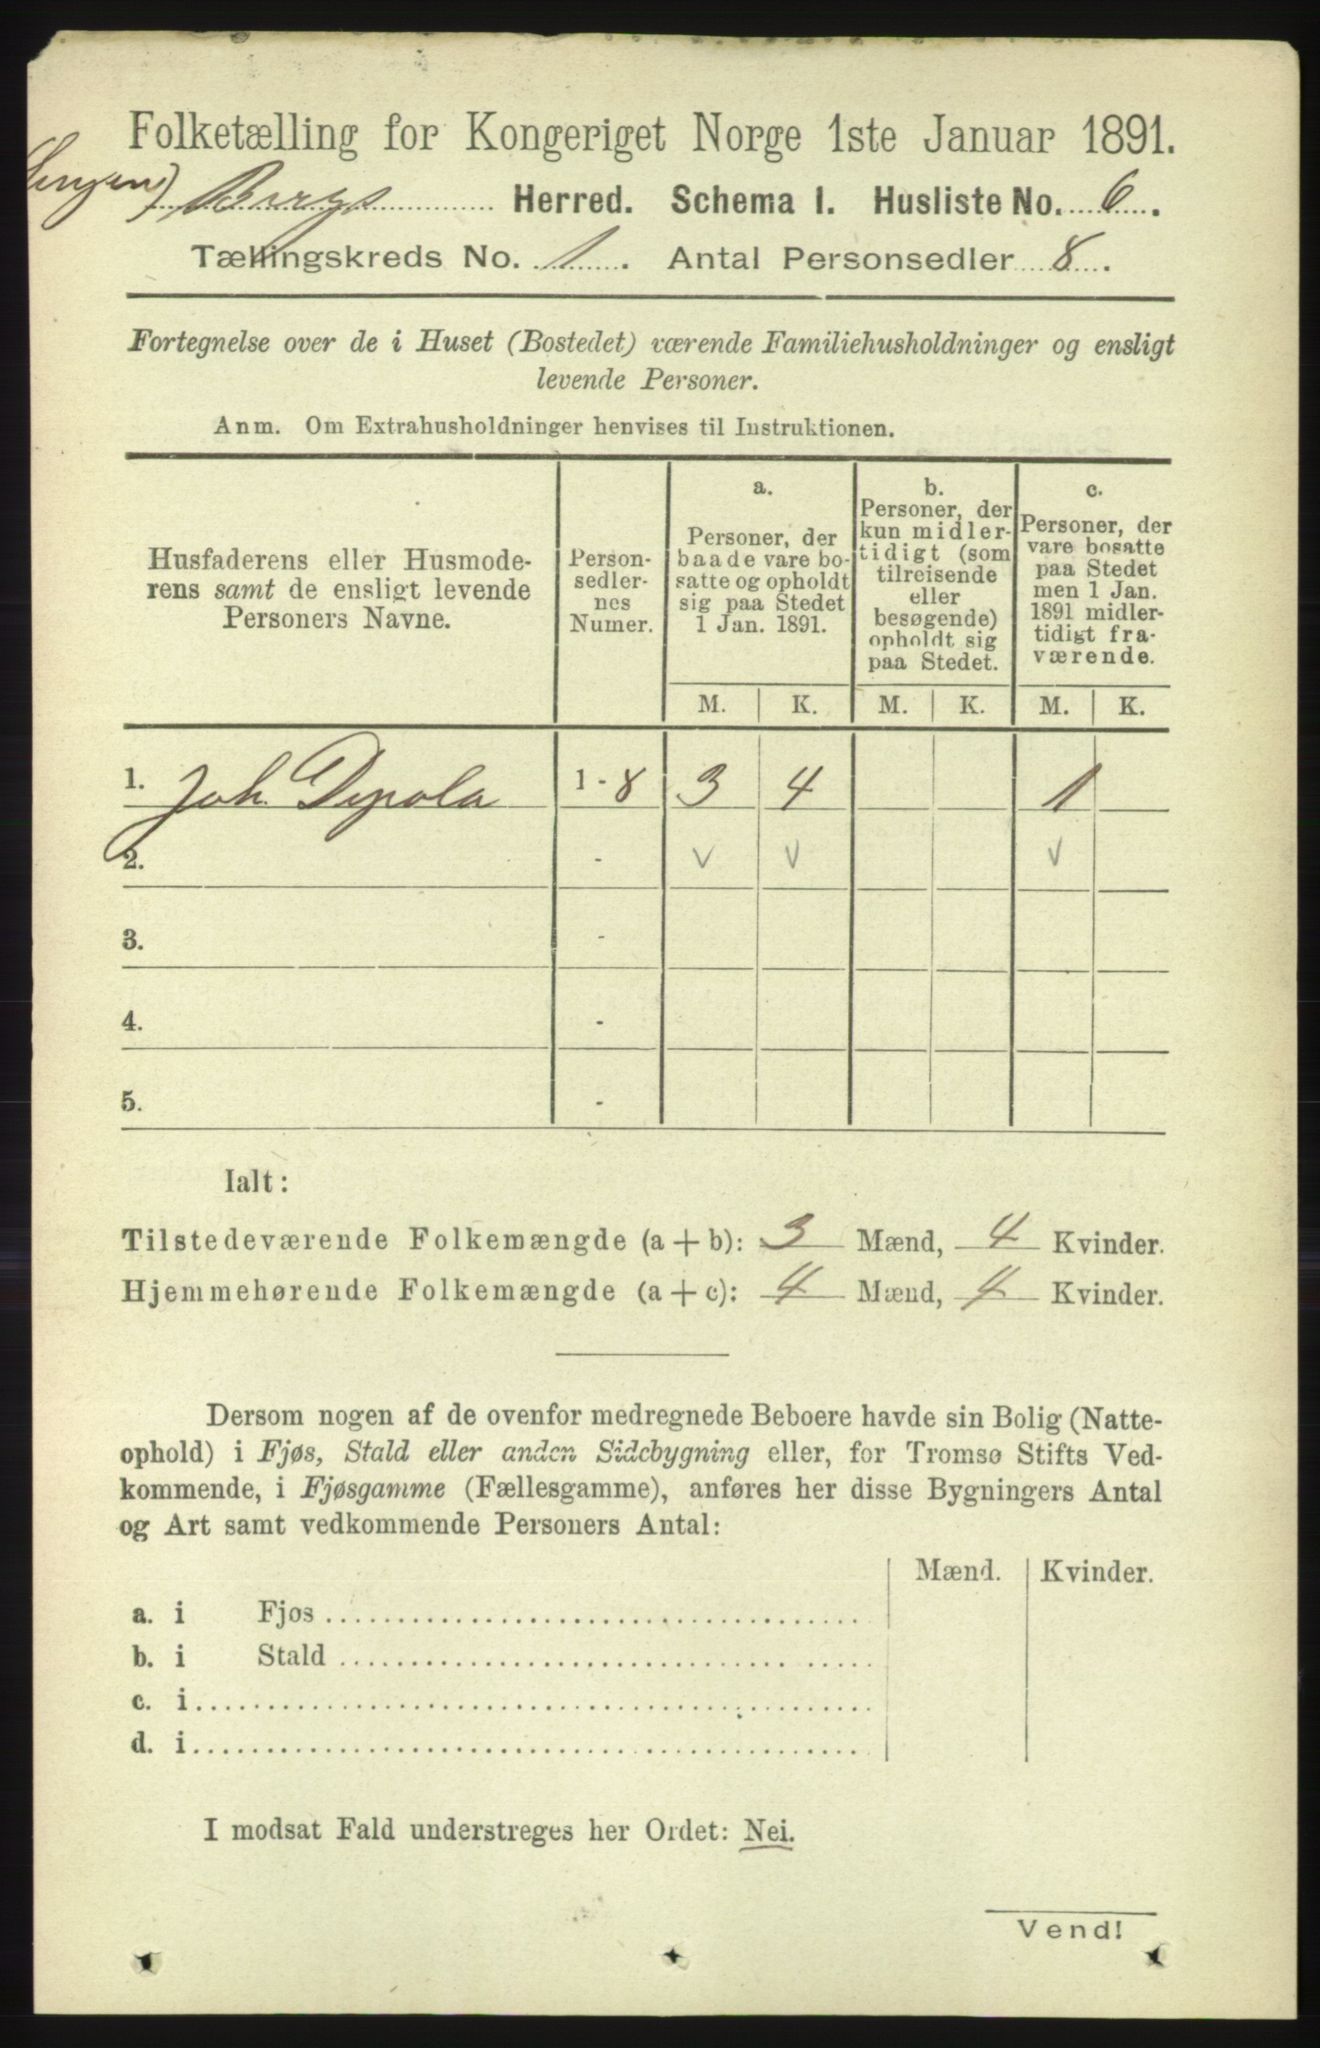 Folketælling for Kongeriget Norge 1ste Januar 1891.
Bergs Herred. Schema I. Husliste No. 6.
Tællingskreds No. 1. Antal Personsedler 8.
Fortegnelse over de i Huset (Bostedet) værende Familiehusholdninger og ensligt
levende Personer.
Anm. Om Extrahusholdninger henvises til Instruktionen.
Husfaderens eller Husmode-
rens samt de ensligt levende
Personers Navne.
Person-
sedler-
nes
Numer.
a.
Personer, der
baade vare bo-
satte og opholdt
sig paa Stedet
1 Jan. 1891.
b.
Personer, der
kun midler-
tidigt (som
tilreisende
eller
besøgende)
opholdt sig
paa Stedet.
c.
Personer, der
vare bosatte
paa Stedet
men 1 Jan.
1891 midler-
tidigt fra-
værende.
M. K. M. K. M. K.
1. Joh. 1 - 8 3 4 1
2. - v v v
3. -
4. -
5. -
Ialt:
Tilstedeværende Folkemængde (a + b): 3 Mænd, 4 Kvinder.
Hjemmehørende Folkemængde (a + c): 4 Mænd, 4 Kvinder.
Dersom nogen af de ovenfor medregnede Beboere havde sin Bolig (Natte-
ophold) i Fjøs, Stald eller anden Sidebygning eller, for Tromsø Stifts Ved-
kommende, i Fjøsgamme (Fællesgamme), anføres her disse Bygningers Antal
og Art samt vedkommende Personers Antal:
Mænd. Kvinder.
a. i Fjøs
b. i Stald
c. i
d. i
I modsat Fald understreges her Ordet: Nei.
Vend!